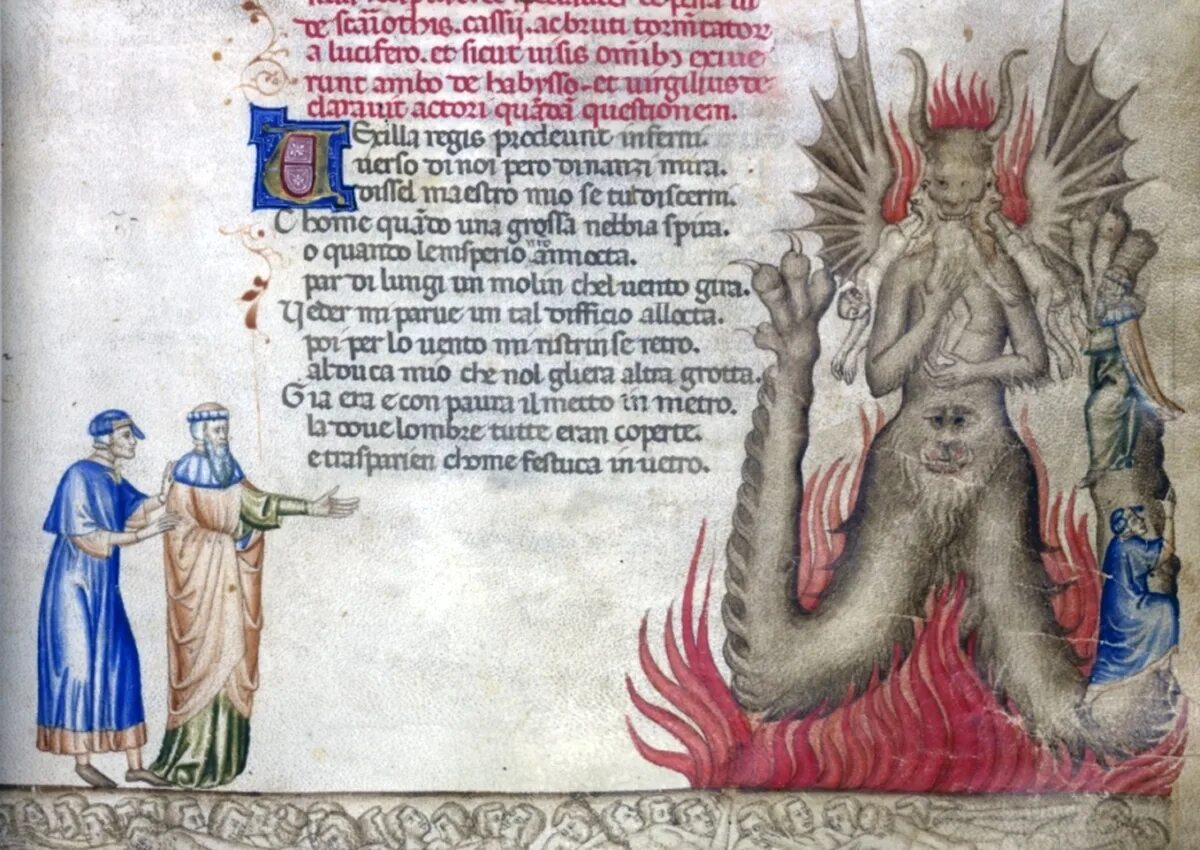 de pena
de scãiothis. cassii. ac bruti tormẽtator
a lucifero. et sicut uisis omĩbȝ exiue
runt ambo de habysso. et uirgilius de
clarauit actori quãdã questionem.
UExilla regis prodeunt inferni.
uerso di noi pero dinanzi mira.
dissel maestro mio se tul discerni.
Chome quãdo una grossa nebbia spira.
o quando lemsperio nrõ annocta.
par di lungi un molin chel uento gira.
Veder mi parue un tal dificio allocta.
poi per lo uento mi ristrinse retro.
al duca mio che nol gliera altra grotta.
Gia era e con paura il metto in metro.
la doue lombre tutte eran coperte.
e trasparien chome festuca in uetro.